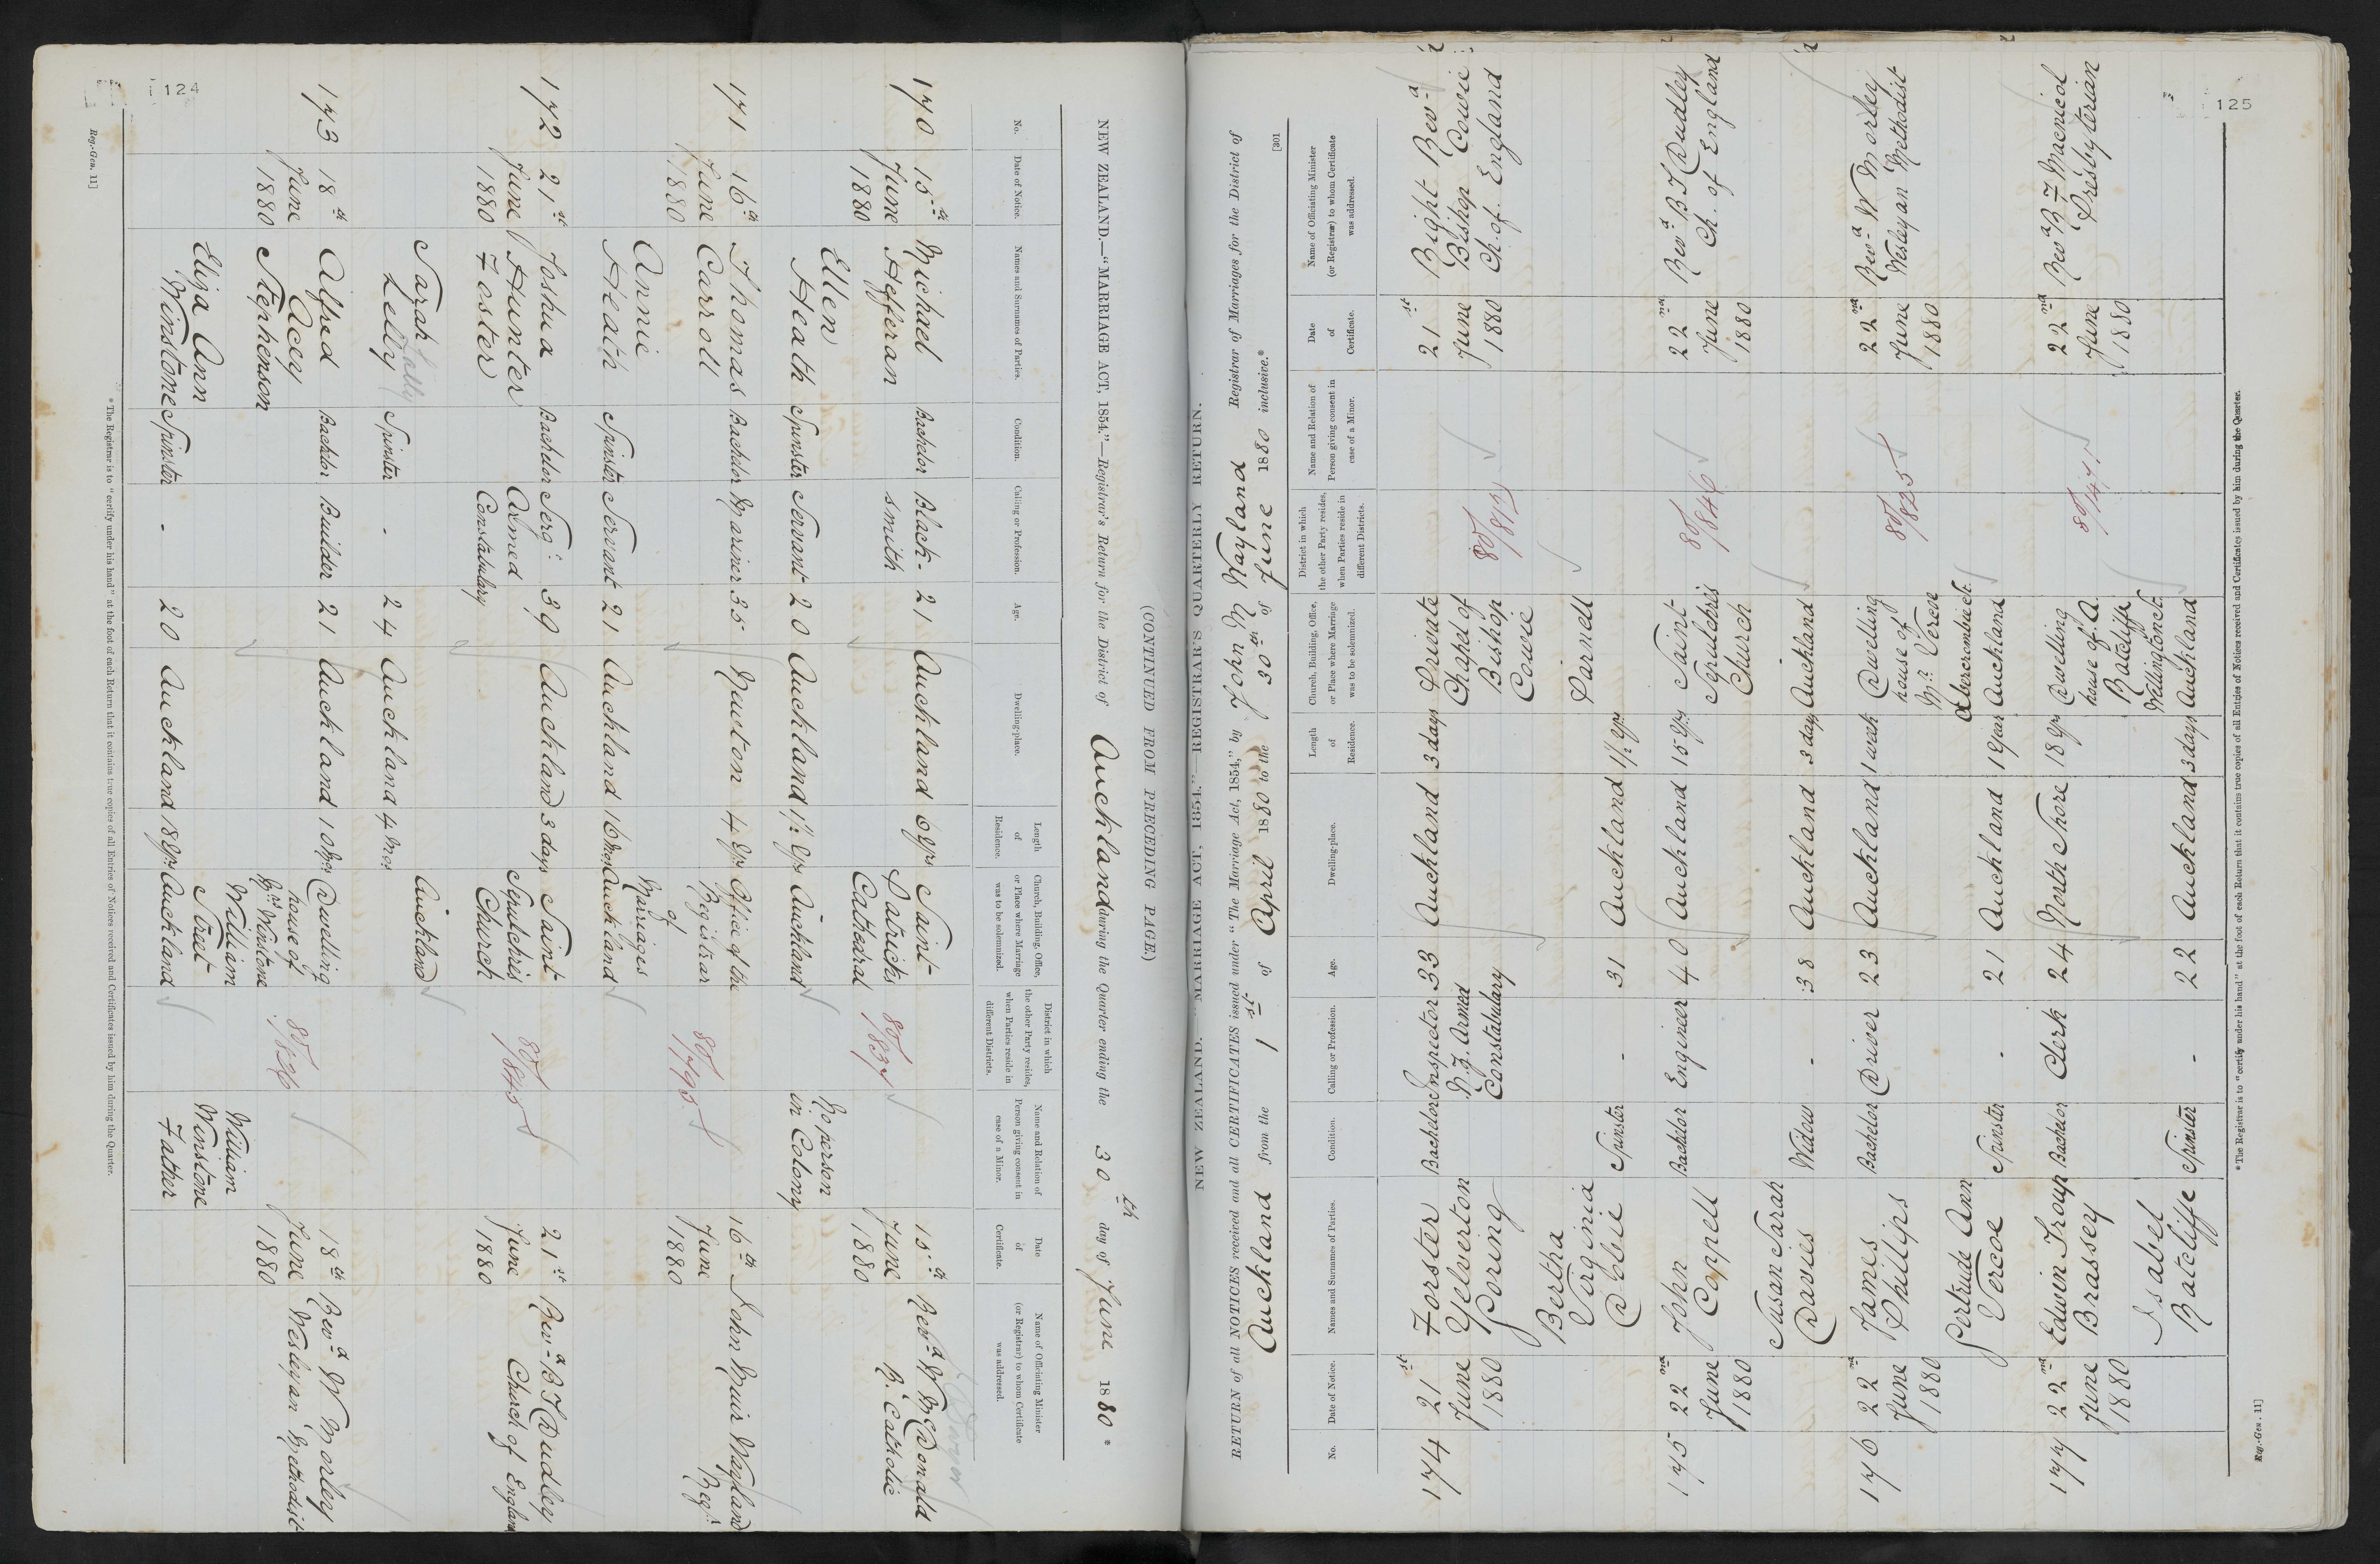 124
(CONTINUED FROM PRECEDING PAGE.)
NEW ZEALAND.—"MARRIAGE ACT, 1854."—Registrar's Return for the District of Auckland during the Quarter ending the 30th day of June 1880 *
No.
Date of Notice.
Names and Surnames of Parties.
Condition.
Calling or Profession.
Age.
Dwelling-place.
Length of Residence.
Church, Building, Office, or Place where Marriage was to be solemnized.
District in which the other Party resides, when Parties reside in different Districts.
Name and Relation of Person giving consent in case of a Minor.
Date of Certificate.
Name of Officiating Minister (or Registrar) to whom Certificate was addressed.
170 15th June 1880 Michael Hefferan Bachelor Blacksmith 21 Auckland 6 yrs Saint Patricks Cathedral 80/837 15th June 1880 Revd W McDonald R. Catholic
Ellen Heath Spinster Servant 20 Auckland 1½ yrs Auckland No person in Colony
171 16th June 1880 Thomas Carroll Bachelor Mariner 35 Newton 4 yrs Office of the Registrar of Marriages 80/1795 16th June 1880 John Muir Wayland Regr
Annie Heath Spinster Servant 21 Auckland 16 mos Auckland
172 21st June 1880 Joshua Hunter Foster Bachelor Sergt Armed Constabulary 39 Auckland 3 days Saint Sepulchres Church 80/845 21st June 1880 Revd B T Dudley Church of England
Sarah Lelly Lally Spinster - 24 Auckland 4 mos Auckland
173 18th June 1880 Alfred Acey Stephenson Bachelor Builder 21 Auckland 10 yrs Dwelling house of Mrs Winstone William Street 80/826 18th June 1880 Revd W Morley Wesleyan Methodist
Eliza Ann Winstone Spinster - 20 Auckland 18 yrs Auckland William Winstone Father
* The Registrar is to "certify under his hand" at the foot of each Return that it contains true copies of all Entries of Notices received and Certificates issued by him during the Quarter.
Reg.-Gen. 11]
125
[301
NEW ZEALAND. "MARRIAGE ACT, 1854."—REGISTRAR'S QUARTERLY RETURN.
RETURN of all NOTICES received and all CERTIFICATES issued under "The Marriage Act, 1854," by John M Wayland Registrar of Marriages for the District of
Auckland from the 1st of April 1880 to the 30th of June 1880 inclusive.*
No.
Date of Notice.
Names and Surnames of Parties.
Condition.
Calling or Profession.
Age.
Dwelling-place.
Length of Residence.
Church, Building, Office, or Place where Marriage was to be solemnized.
District in which the other Party resides, when Parties reside in different Districts.
Name and Relation of Person giving consent in case of a Minor.
Date of Certificate.
Name of Officiating Minister (or Registrar) to whom Certificate was addressed.
174 21st June 1880 Forster Yelverton Goring Bachelor Inspector N.Z. Armed Constabulary 33 Auckland 3 days Private Chapel of Bishop Cowie 21st June 1880 Right Revd Bishop Cowie Ch. of England
Bertha Virginia Dobie Spinster - 31 Auckland 1½ yrs Parnell
175 22nd June 1880 John Coppell Bachelor Engineer 40 Auckland 15 yrs Saint Sepulchres Church 80/846 22nd June 1880 Revd B T Dudley Ch. of England
Susan Sarah Davies Widow - 38 Auckland 3 days Auckland
176 22nd June 1880 James Phillips Bachelor Driver 23 Auckland 1 week Dwelling house of Mr Vercoe Abercrombie St. 80/825 22nd June 1880 Revd W Morley Wesleyan Methodist
Gertrude Ann Vercoe Spinster - 21 Auckland 1 year Auckland
177 22nd June 1880 Edwin Troup Brassey Bachelor Clerk 24 North Shore 18 yrs Dwelling house of A. Ratcliffe Wellington St. 22nd June 1880 Revd R F Macnicol Presbyterian
Isabel Ratcliffe Spinster - 22 Auckland 3 days Auckland
* The Registrar is to "certify under his hand" at the foot of each Return that it contains true copies of all Entries of Notices received and Certificates issued by him during the Quarter.
Reg.-Gen. 11]